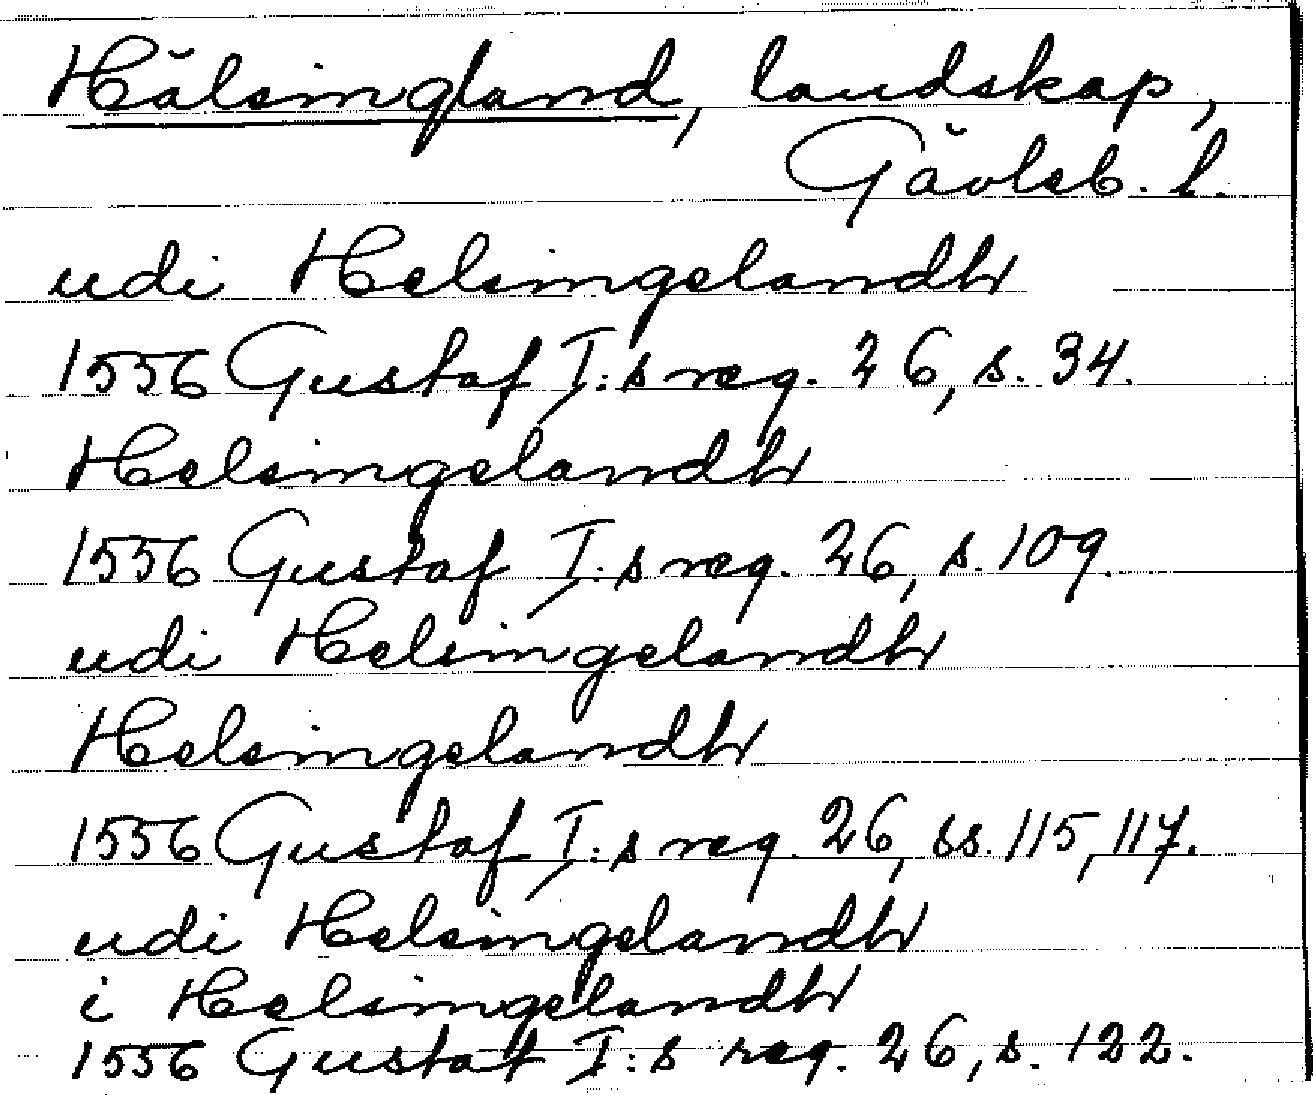 Hälsingland, landskap,
Gävleb. l.
udi Helsingelandh
1556 Gustaf I:s reg. 26, s. 34.
Helsingelandh
1556 Gustaf I:s reg. 26, s. 109.
udi Helsingelandh
Helsingelandh
1556 Gustaf I:s reg. 26, ss. 115, 117.
udi Helsingelandh
i Helsingelandh
1556 Gustaf I:s reg. 26, s. 122.